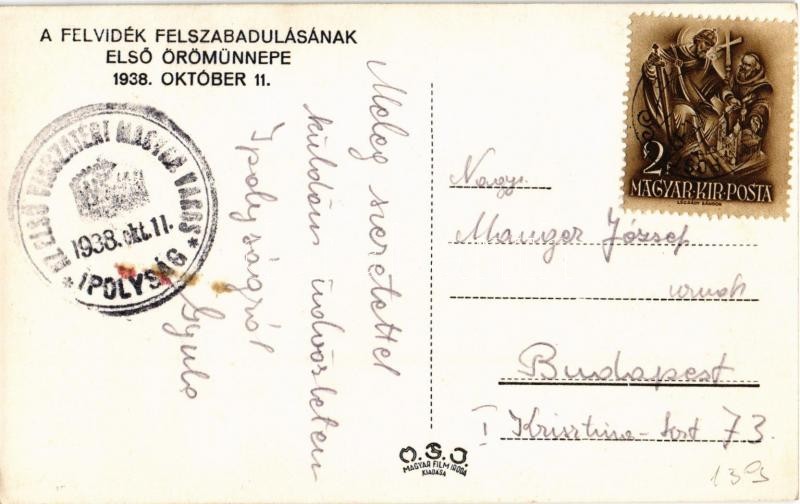 A FELVIDÉK FELSZABADULÁSÁNAK
ELSŐ ÖRÖMÜNNEPE
1938. OKTÓBER 11.
AZ ELSŐ VISSZATÉRT MAGYAR VÁROS
1938. okt. 11.
* IPOLYSÁG *
Meleg szeretettel
küldöm üdvözletem
Ipolyságról
Gyula
2
MAGYAR·KIR·POSTA
LÉGRÁDY SÁNDOR
Nagys.
Manger József
urnak
Budapest
I Krisztina-krt 73.
O.S.J.
MAGYAR FILM IRODA
KIADÁSA
139